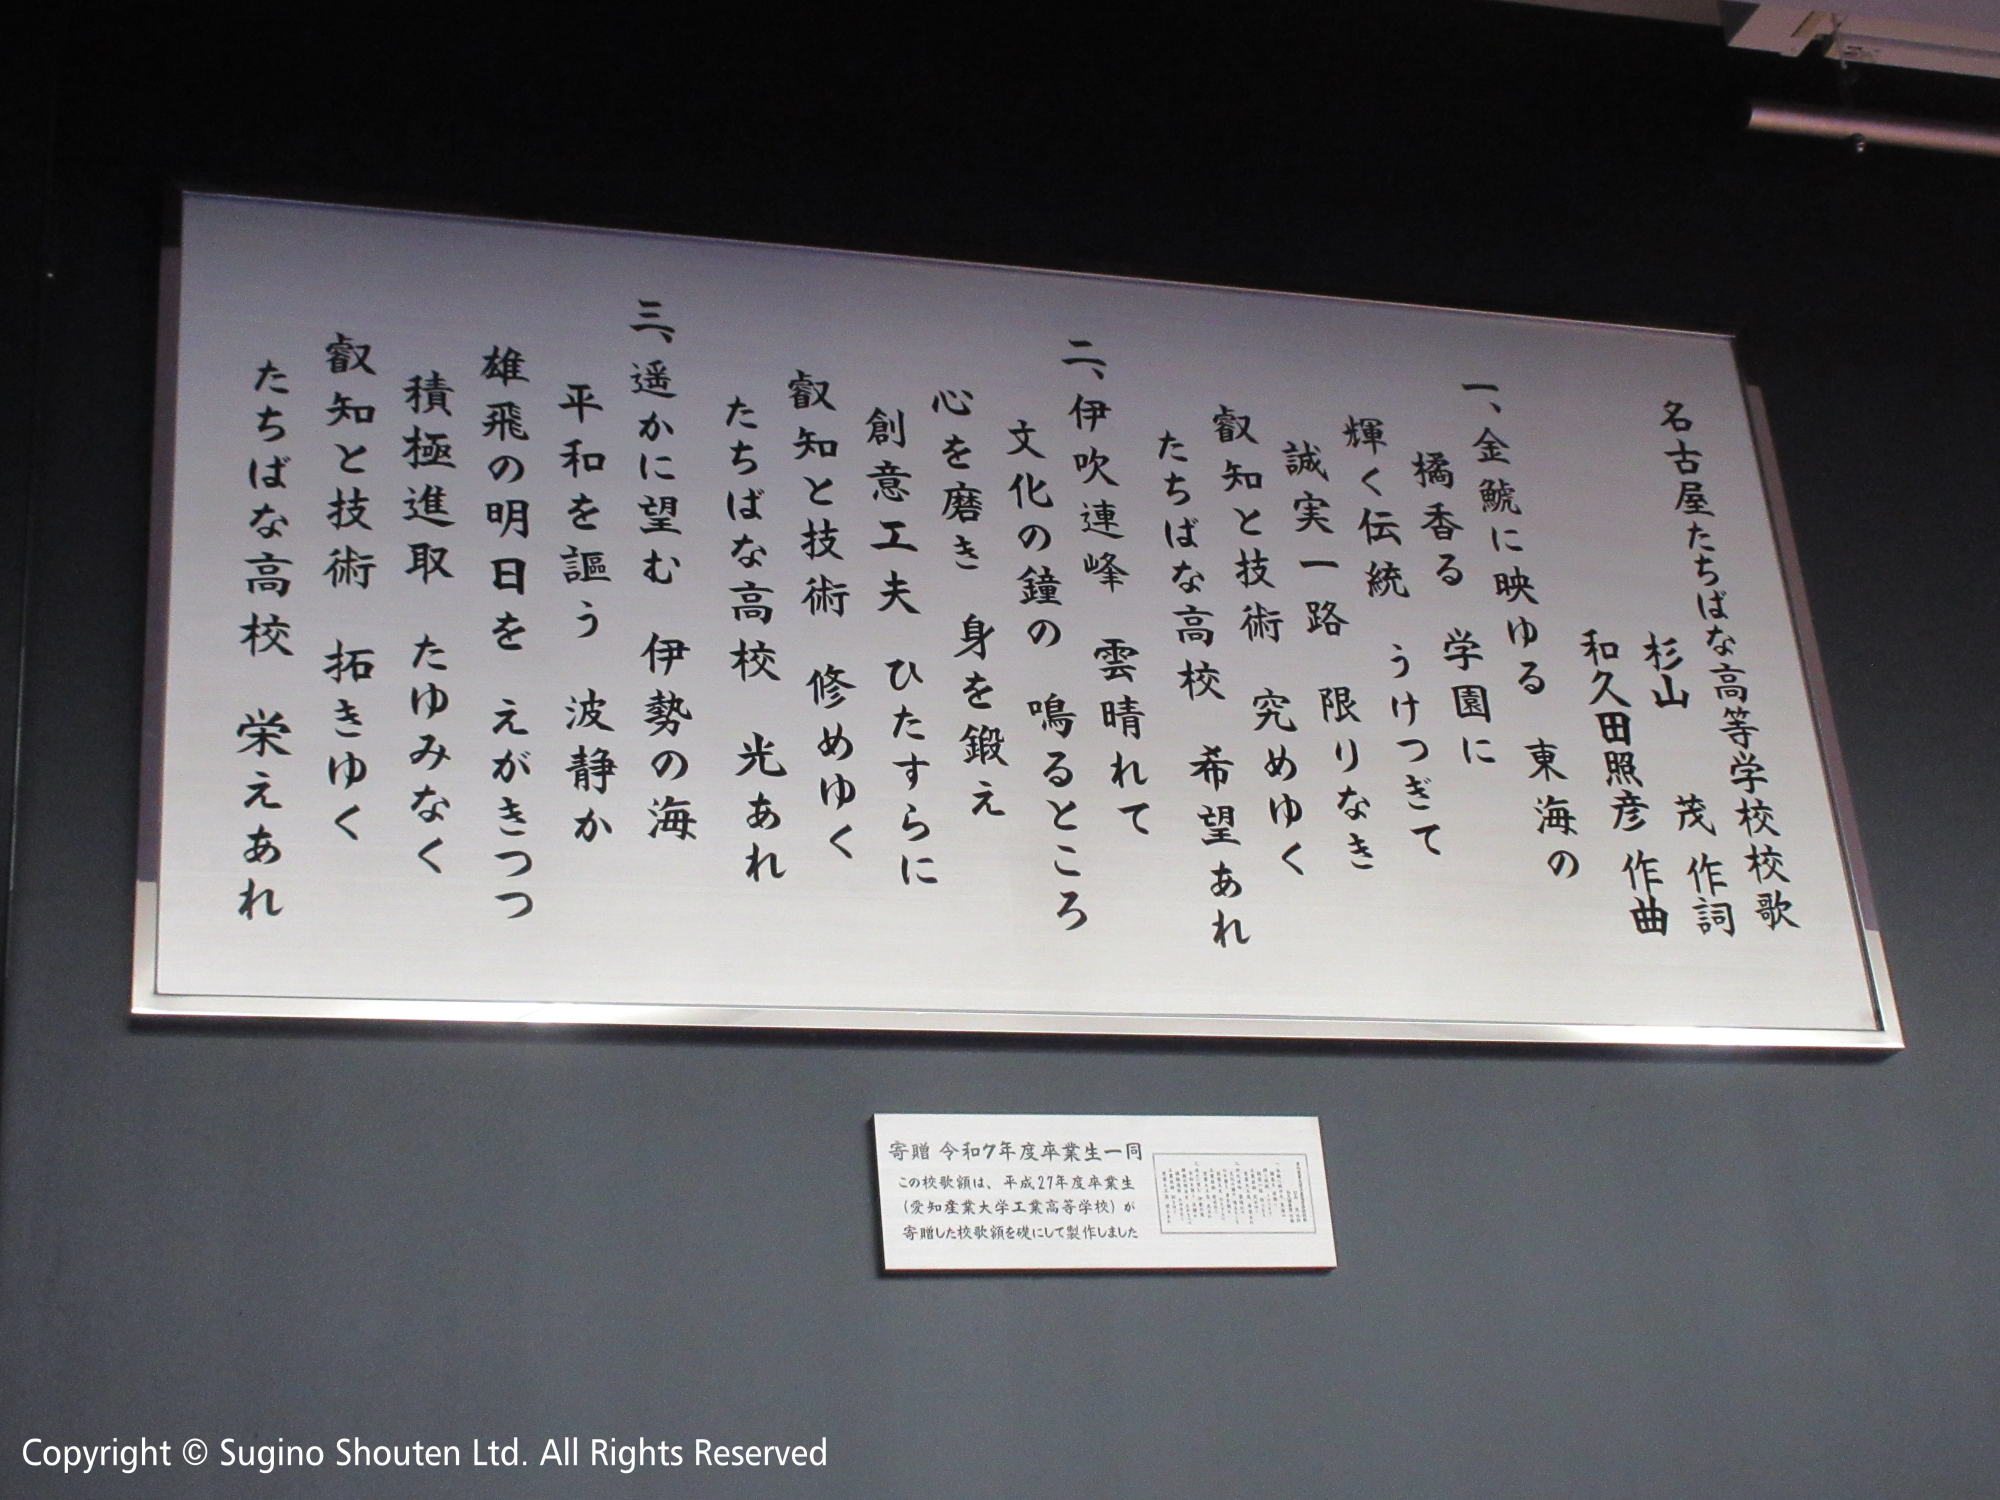 名古屋たちばな高等学校校歌
杉山　茂 作詞
和久田照彦 作曲
一、金鯱に映ゆる　東海の
橘香る　学園に
輝く伝統　うけつぎて
誠実一路　限りなき
叡知と技術　究めゆく
たちばな高校　希望あれ
二、伊吹連峰　雲晴れて
文化の鐘の　鳴るところ
心を磨き　身を鍛え
創意工夫　ひたすらに
叡知と技術　修めゆく
たちばな高校　光あれ
三、遥かに望む　伊勢の海
平和を謳う　波静か
雄飛の明日を　えがきつつ
積極進取　たゆみなく
叡知と技術　拓きゆく
たちばな高校　栄えあれ
寄贈 令和7年度卒業生一同
この校歌額は、平成27年度卒業生
(愛知産業大学工業高等学校)が
寄贈した校歌額を礎にして製作しました
Copyright © Sugino Shouten Ltd. All Rights Reserved